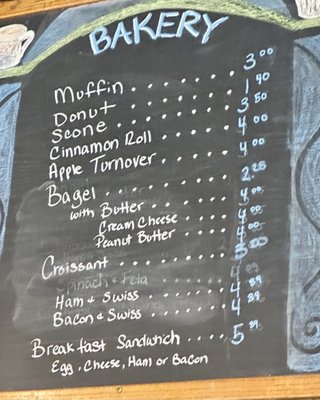 BAKERY
Muffin . . . . . . . . 3.00
Donut . . . . . . . . 1.90
Scone . . . . . . . . 3.50
Cinnamon Roll . . . . . 4.00
Apple Turnover . . . . . 4.00
Bagel . . . . . . . . 2.25
with Butter . . . . . .
Cream Cheese . . . . .
Peanut Butter . . . .
Croissant . . . . . . .
Spinach & Feta
Ham & Swiss . . . . . 4.89
Bacon & Swiss . . . . . 4.89
Breakfast Sandwich . . . . 5
Egg, Cheese, Ham or Bacon